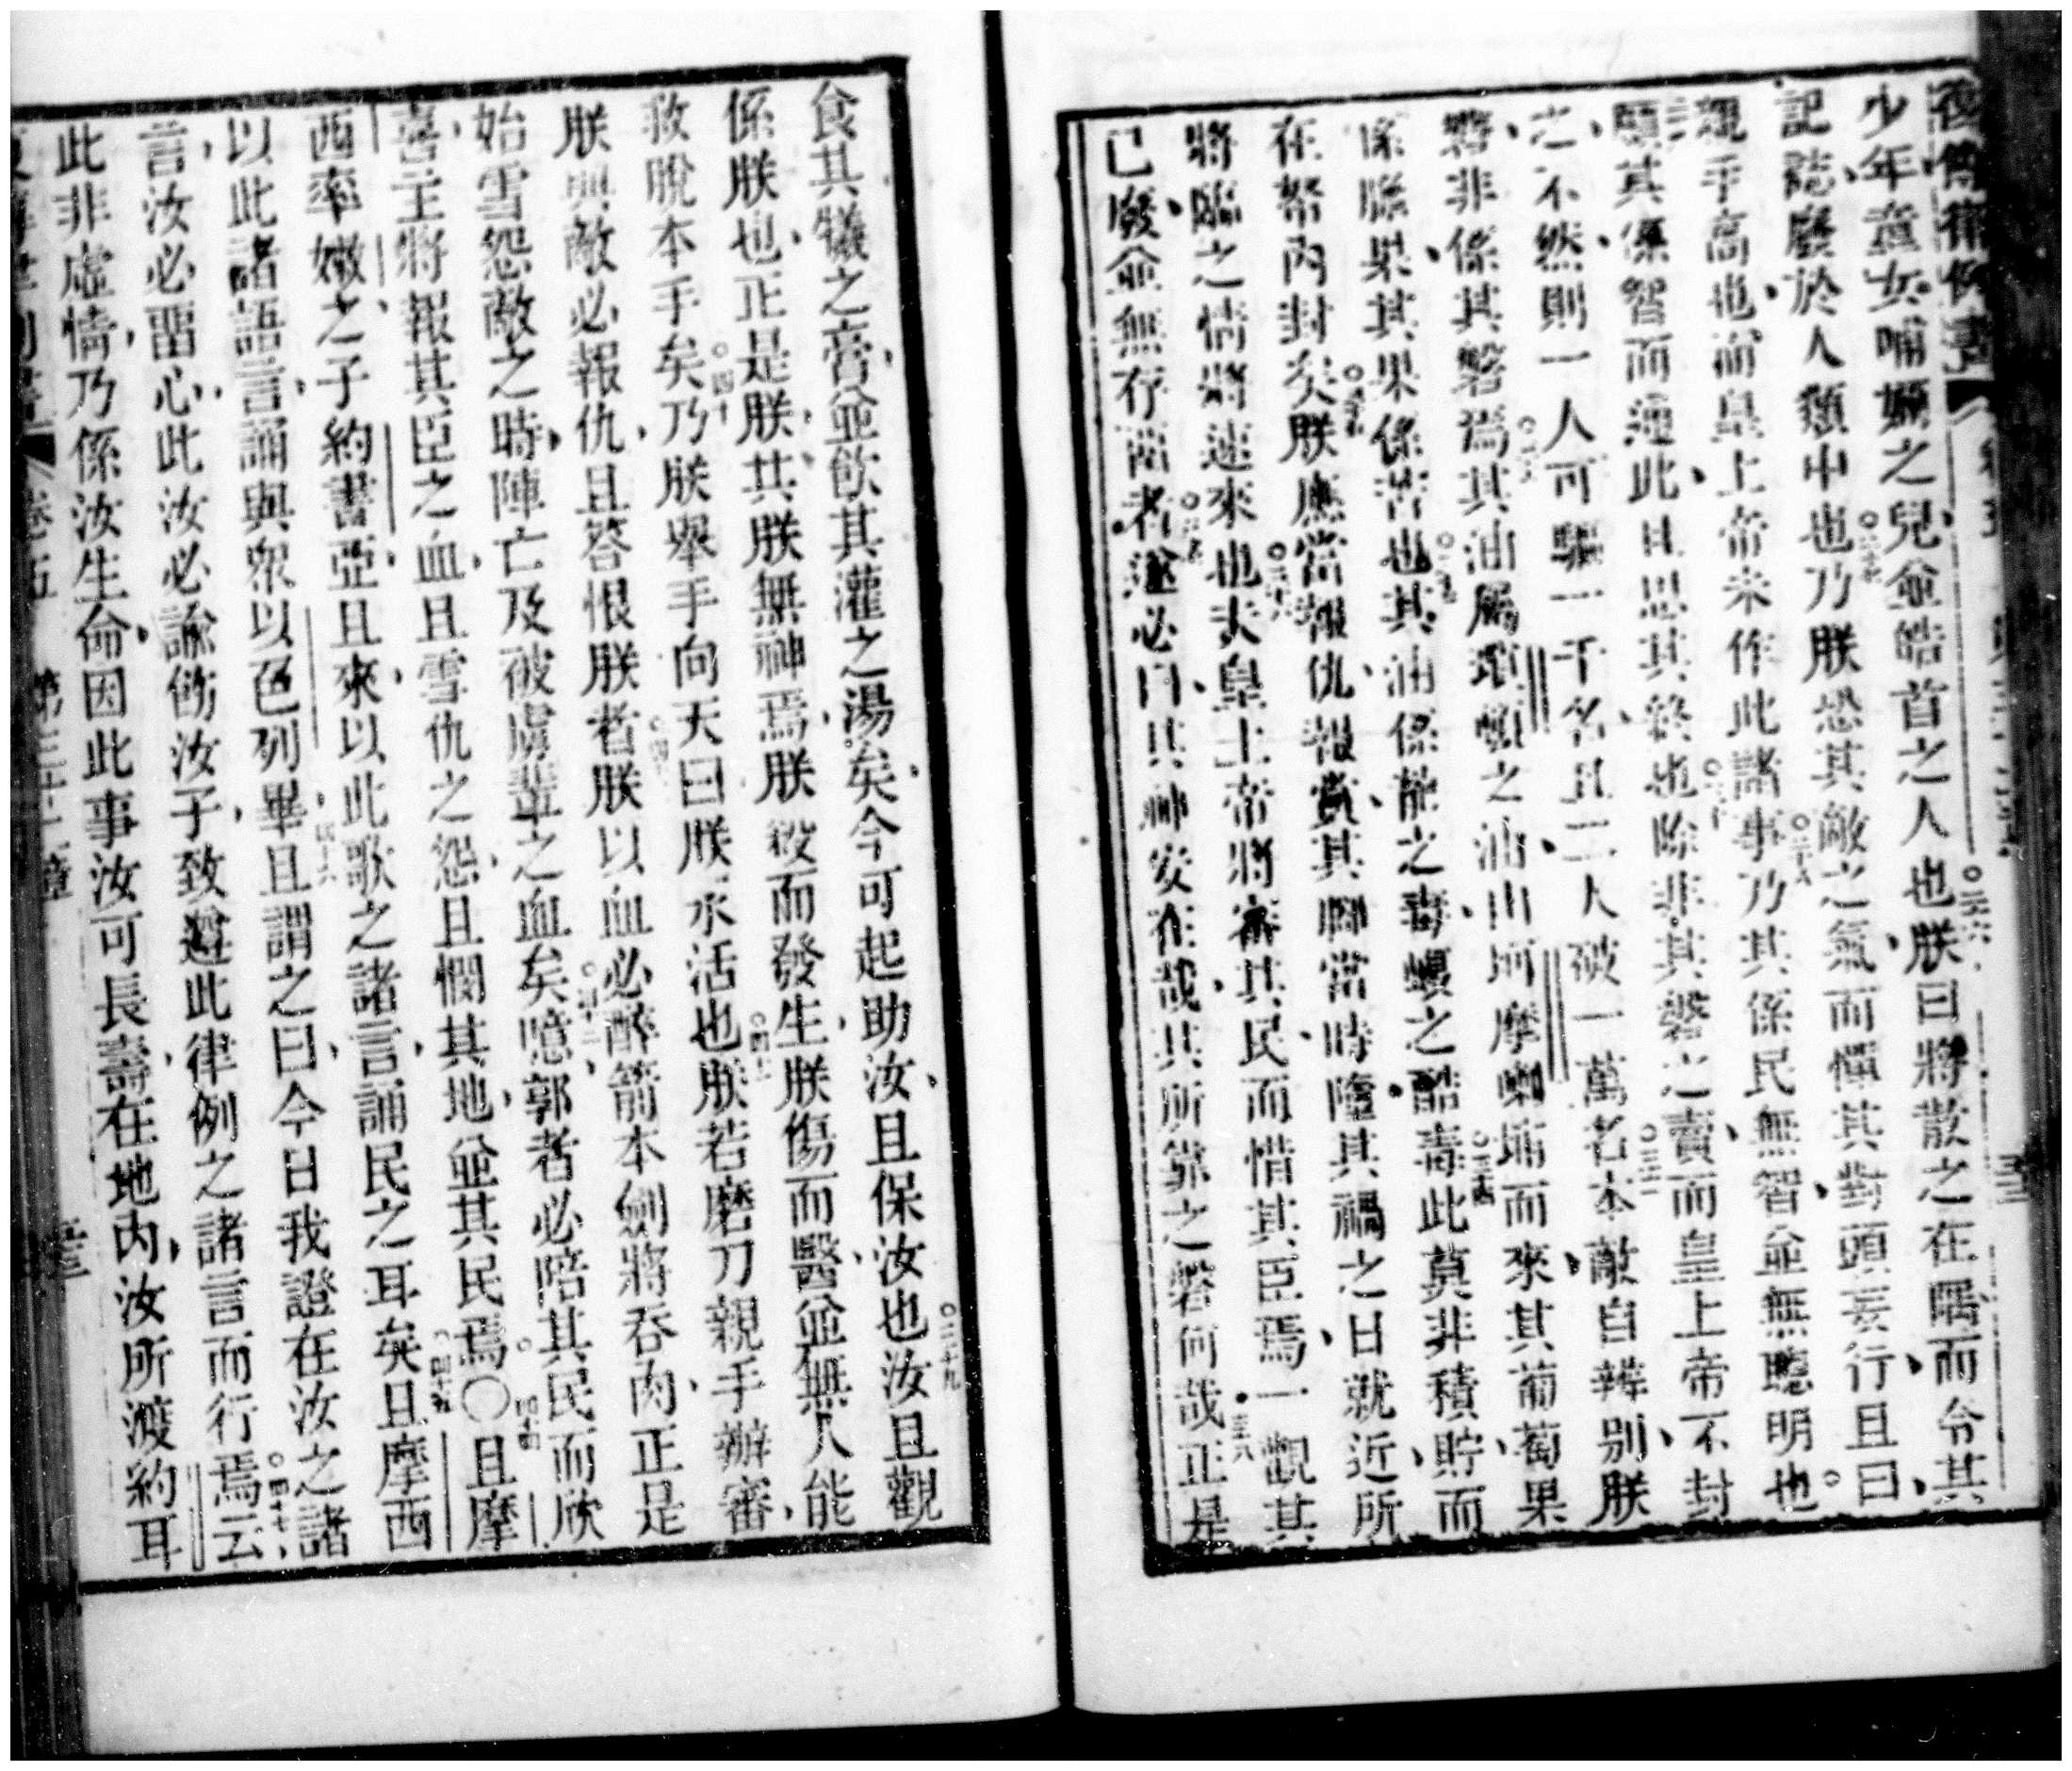 復傳律例書
少年童女哺嬭之兒並皓首之人也朕曰將散之在隅而令其
記誌廢於人類中也乃朕恐其敵之氣而憚其對頭妄行且曰
親手高也而皇上帝未作此諸事乃其係民無智並無聰明也
願其懷智而達此且思其終也除非其磐之賣而皇上帝不封
之不然則一人可驅一千名且二人破一萬名本敵自辨別朕
磐非係其磐為其油屬瑣頓之油由坷摩喇埔而來其葡萄果
係膽果其果係苦也其油係龍之毒蠎之酷毒此莫非積貯而
在帑內封矣朕應當報仇報賞其腳當時隨其禍之日就近所
將臨之情將速來也夫皇上帝將審其民而惜其臣焉一觀其
已廢並無存畱者遂必曰其神安在哉其所靠之磐何哉正是
食其犧之膏並飲其灌之湯矣今可起助汝且保汝也汝且觀
係朕也正是朕共朕無神焉朕殺而發生朕傷而醫並無人能
救脫本手矣乃朕舉手向天曰朕永活也朕若磨刀親手辦審
朕與敵必報仇且答恨朕者朕以血必醉箭本劍將吞肉正是
始雪怨敵之時陣亡及被虜輩之血矣噫郭者必陪其民而欣
喜主將報其臣之血且雪仇之怨且憫其地並其民焉〇且摩
西率嫩之子約書亞且來以此歌之諸言誦民之耳矣且摩西
以此諸語言誦與衆以色列畢且謂之曰今日我證在汝之諸
言汝必畱心此汝必諭飭汝子致遵此律例之諸言而行焉云
此非虛情乃係汝生命因此事汝可長壽在地內汝所渡約耳
卷五 第三十二章